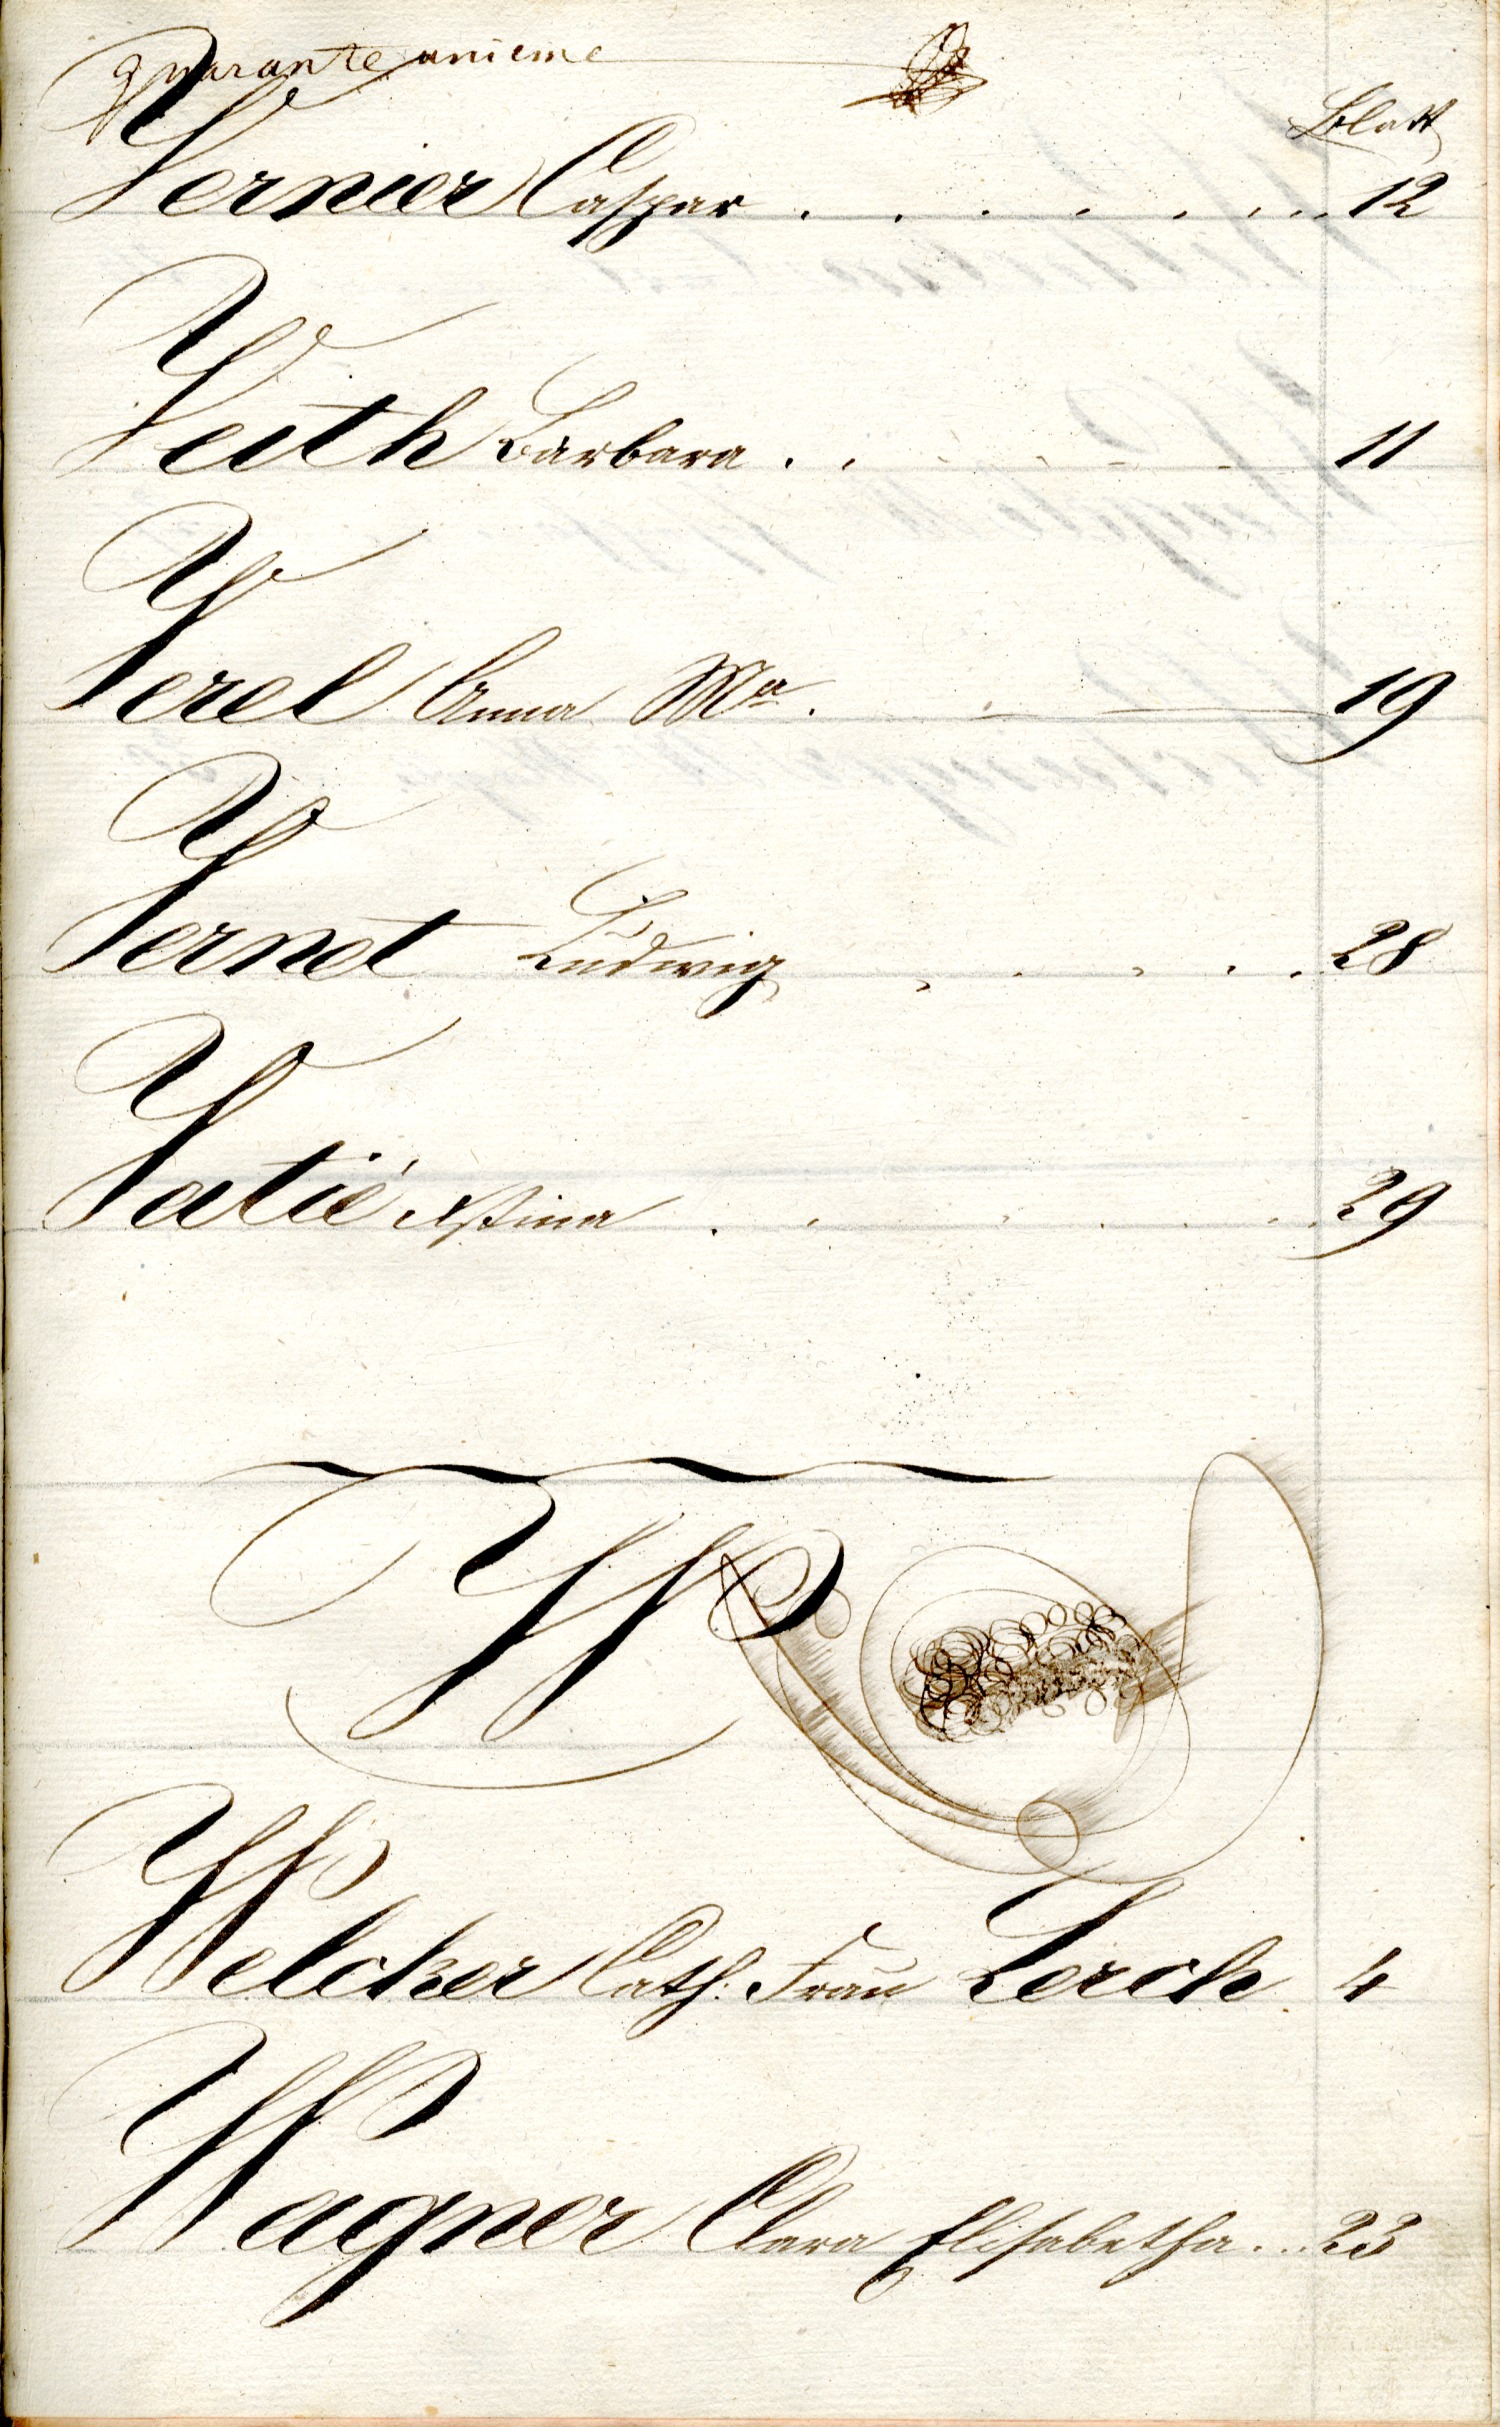 Quarante unieme
Blatt
Vernier Caspar . . . . . . . . 12
Veith Barbara . . . . . . 11
Verel Anna Ma. 19
Vernet Ludwig . . . . . 28
Vatié . . . . . . . 29
W
Welcker Cath: Frau Lerch 4
Wagner Clara Elisabetha . . . 23